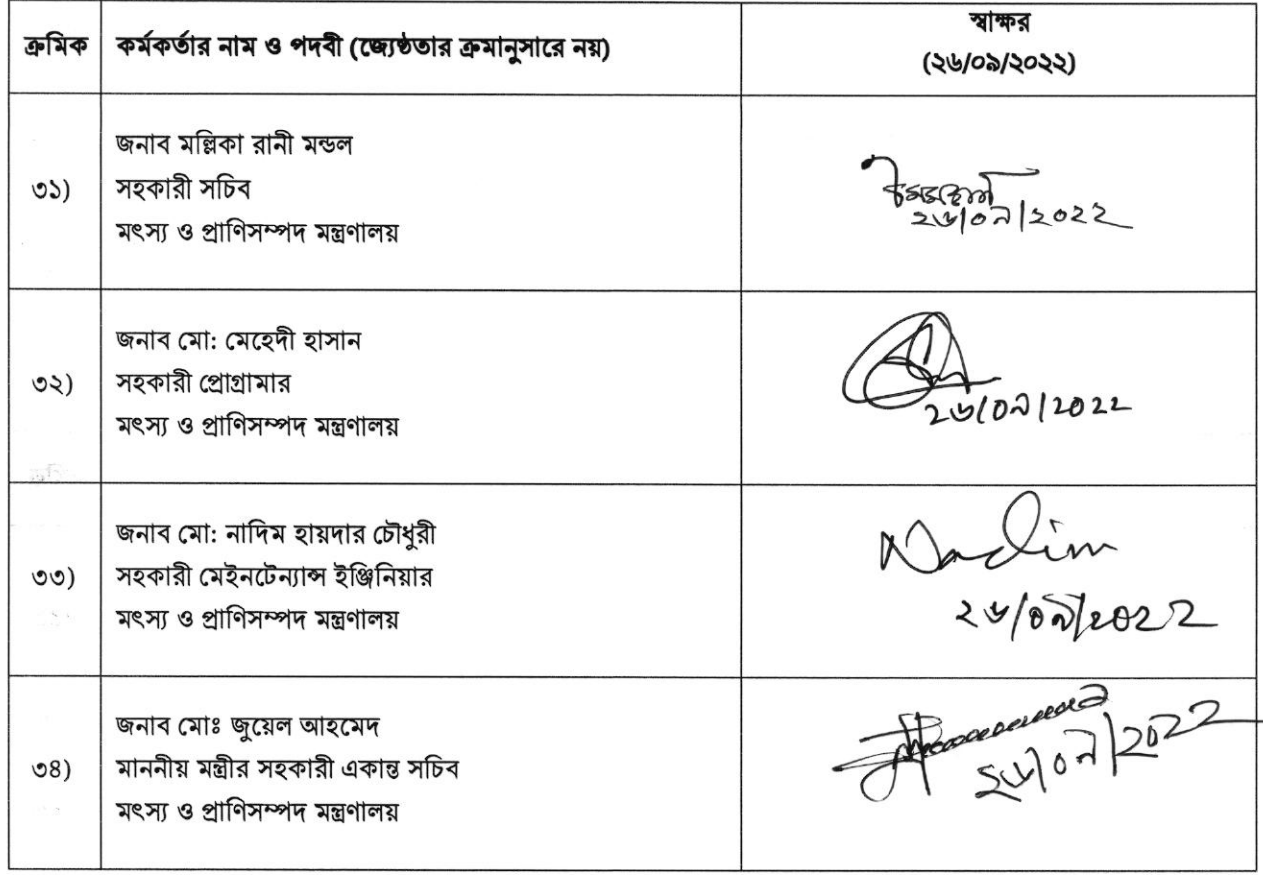 ক্রমিক
কর্মকর্তার নাম ও পদবী (জ্যেষ্ঠতার ক্রমানুসারে নয়)
স্বাক্ষর
(২৬/০৯/২০২২)
৩১)
জনাব মল্লিকা রানী মন্ডল
সহকারী সচিব
মৎস্য ও প্রাণিসম্পদ মন্ত্রণালয়
২৬/০৯/২০২২
৩২)
জনাব মো: মেহেদী হাসান
সহকারী প্রোগ্রামার
মৎস্য ও প্রাণিসম্পদ মন্ত্রণালয়
২৬/০৯/২০২২
৩৩)
জনাব মো: নাদিম হায়দার চৌধুরী
সহকারী মেইনটেন্যান্স ইঞ্জিনিয়ার
মৎস্য ও প্রাণিসম্পদ মন্ত্রণালয়
Nadim
২৬/০৯/২০২২
৩৪)
জনাব মোঃ জুয়েল আহমেদ
মাননীয় মন্ত্রীর সহকারী একান্ত সচিব
মৎস্য ও প্রাণিসম্পদ মন্ত্রণালয়
২৬/০৯/২০২২